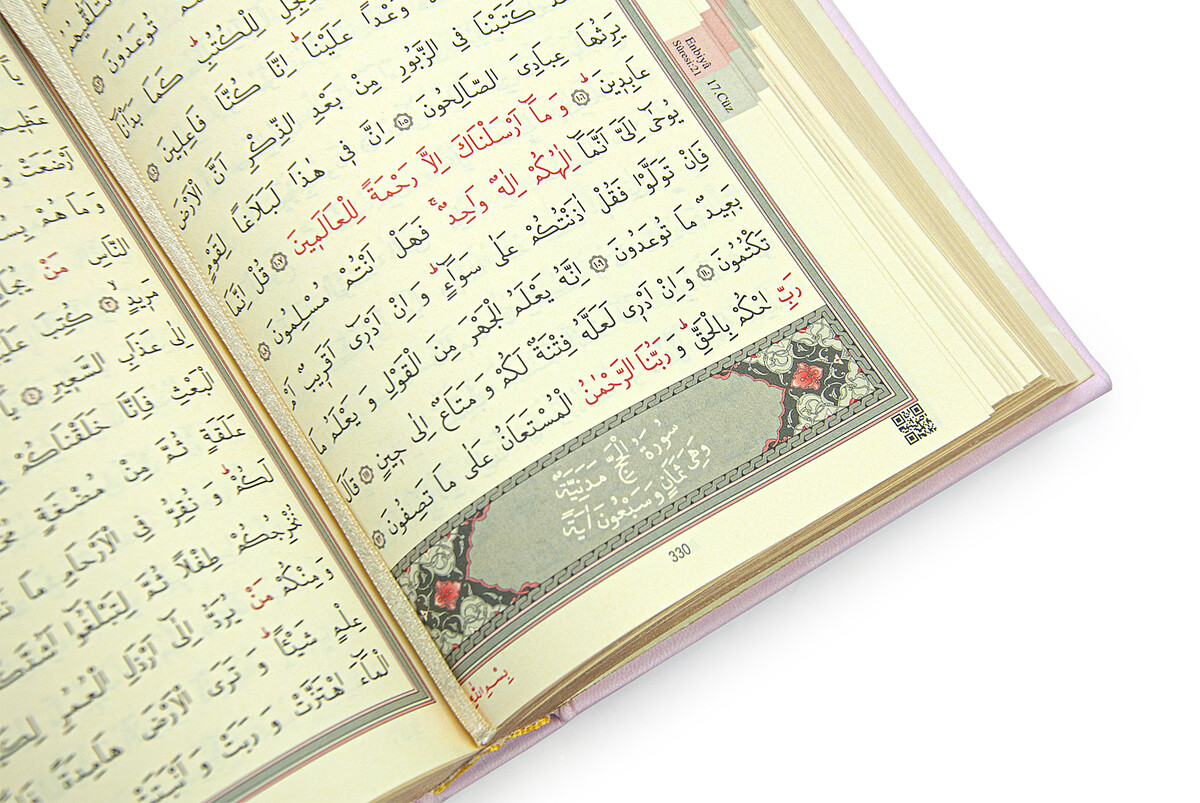 تُوعَدُونَ
لِلْكُتُبِ كَمَا بَدَأْنَا
وَعْدًا عَلَيْنَا اِنَّا كُنَّا فَاعِلِينَ
كَتَبْنَا فِي الزَّبُورِ مِنْ بَعْدِ الذِّكْرِ اَنَّ الْاَرْضَ
يَرِثُهَا عِبَادِيَ الصَّالِحُونَ ﴿١٠٥﴾ اِنَّ فِي هٰذَا لَبَلَاغًا لِقَوْمٍ
عَابِدِينَ ﴿١٠٦﴾ وَمَٓا اَرْسَلْنَاكَ اِلَّا رَحْمَةً لِلْعَالَمِينَ ﴿١٠٧﴾ قُلْ اِنَّمَا
يُوحٰٓى اِلَيَّ اَنَّمَٓا اِلٰهُكُمْ اِلٰهٌ وَاحِدٌ فَهَلْ اَنْتُمْ مُسْلِمُونَ ﴿١٠٨﴾
فَاِنْ تَوَلَّوْا فَقُلْ اٰذَنْتُكُمْ عَلٰى سَوَٓاءٍ وَاِنْ اَدْرِٓي اَقَرِيبٌ اَمْ
بَعِيدٌ مَا تُوعَدُونَ ﴿١٠٩﴾ اِنَّهُ يَعْلَمُ الْجَهْرَ مِنَ الْقَوْلِ وَيَعْلَمُ مَا
تَكْتُمُونَ ﴿١١٠﴾ وَاِنْ اَدْرِي لَعَلَّهُ فِتْنَةٌ لَكُمْ وَمَتَاعٌ اِلٰى حِينٍ ﴿١١١﴾ قَالَ
رَبِّ احْكُمْ بِالْحَقِّ وَرَبُّنَا الرَّحْمٰنُ الْمُسْتَعَانُ عَلٰى مَا تَصِفُونَ ﴿١١٢﴾
سُورَةُ الْحَجِّ مَدَنِيَّةٌ
وَهِيَ ثَمَانٍ وَسَبْعُونَ اٰيَةً
330
بِسْمِ اللّٰهِ
Enbiyâ
Sûresi:21
17.Cüz
عَظِيمٌ
اَرْضَعَتْ
وَمَا هُمْ
النَّاسِ مَنْ
مَرِيدٍ ﴿٣﴾ كُتِبَ
اِلٰى عَذَابِ السَّعِيرِ ﴿٤﴾
الْبَعْثِ فَاِنَّا خَلَقْنَاكُمْ
عَلَقَةٍ ثُمَّ مِنْ مُضْغَةٍ
لَكُمْ وَنُقِرُّ فِي الْاَرْحَامِ مَا
نُخْرِجُكُمْ طِفْلًا ثُمَّ لِتَبْلُغُٓوا
وَمِنْكُمْ مَنْ يُرَدُّ اِلٰٓى اَرْذَلِ الْعُمُرِ
عِلْمٍ شَيْـًٔا وَتَرَى الْاَرْضَ هَامِدَةً
الْمَٓاءَ اهْتَزَّتْ وَرَبَتْ وَاَنْبَتَتْ